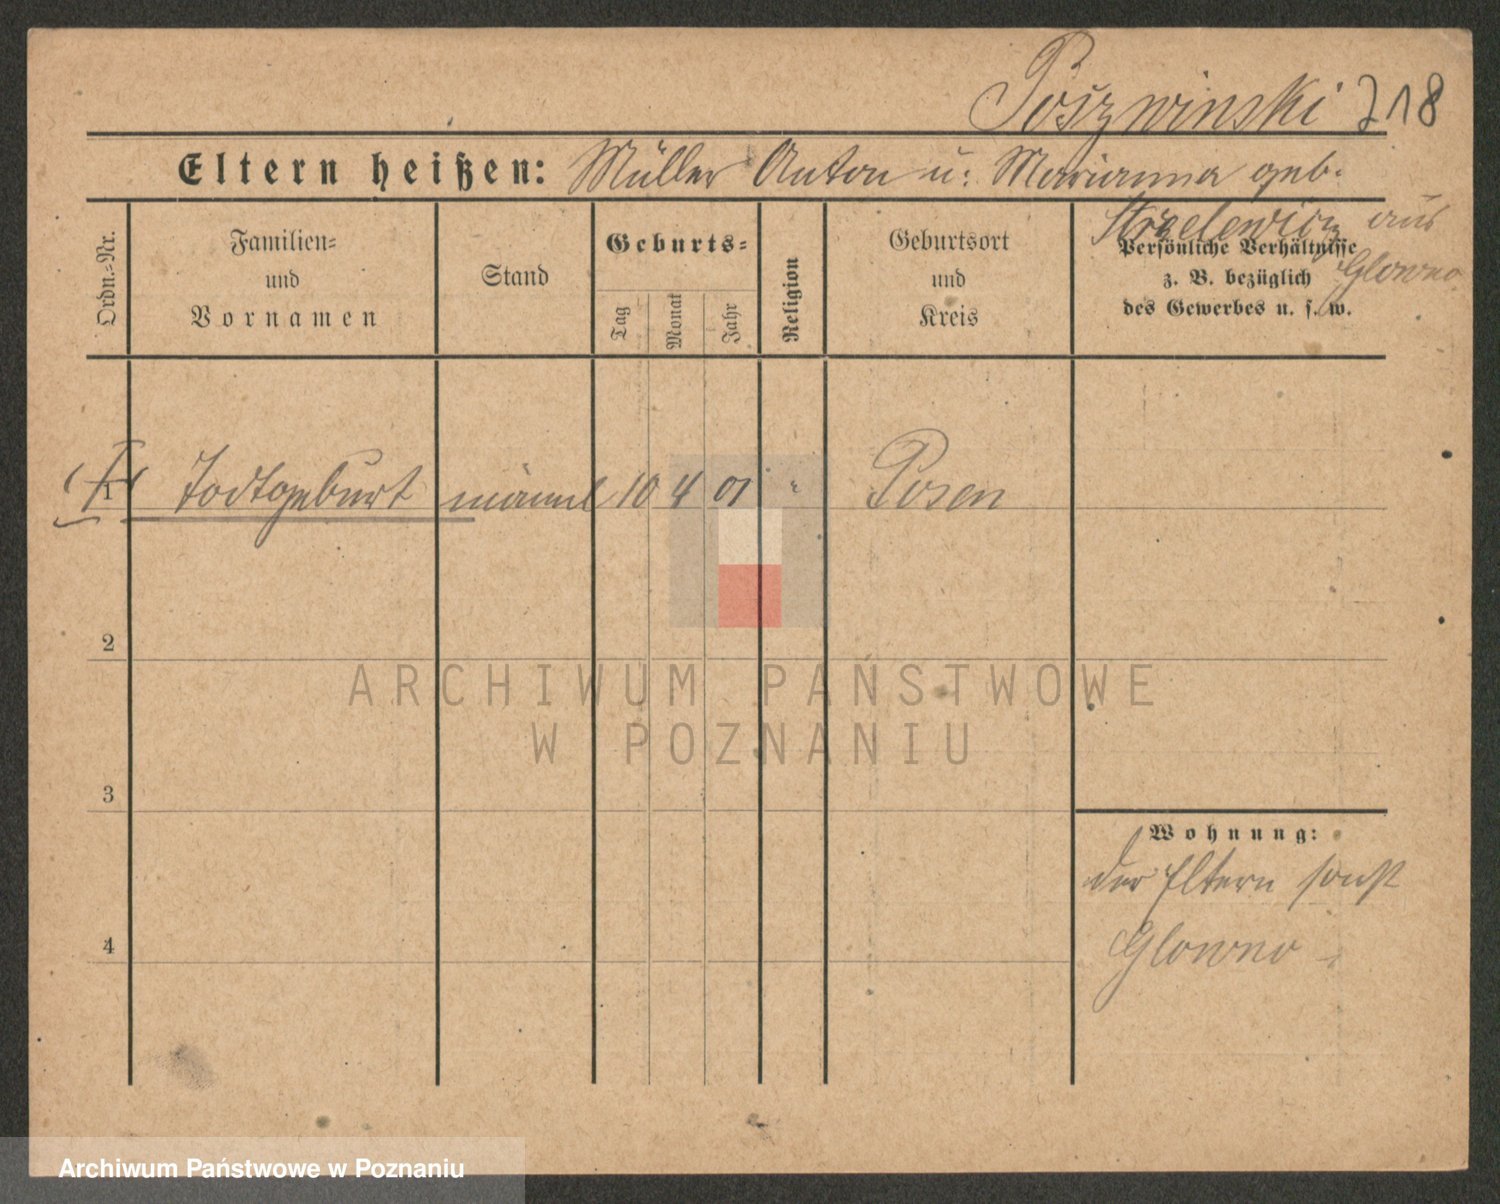 Poszwinski 718
Eltern heißen: Müller Anton u. Marianna geb.
Strzelewicz aus
Glowno
Ordn.-Nr.
Familien-
und
Vornamen
Stand
Geburts-
Tag
Monat
Jahr
Religion
Geburtsort
und
Kreis
Persönliche Verhältnisse
z. B. bezüglich
des Gewerbes u. s. w.
1 Todtgeburt männl 10 4 01 Posen
2
3
4
Wohnung:
der Eltern sonst
Glowno
ARCHIWUM PAŃSTWOWE
W POZNANIU
Archiwum Państwowe w Poznaniu